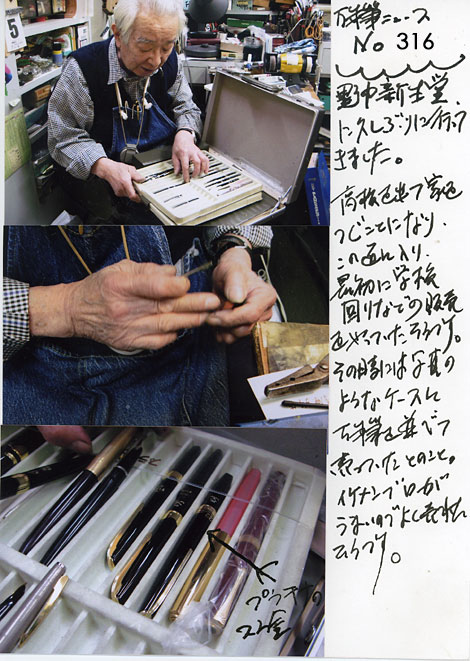 万年筆ニュース
No 316
野中新生堂
に久しぶりに行って
きました。
高校を出て家を
つぐことになり、
この道に入り、
最初に学校
回りなどの販売
をやっていたそうです。
その時には写真の
ようなケースに
万年筆を並べて
売っていたとのこと。
イケメンプロが
うまいのでよく売れた
そうです。
プラチナの
5